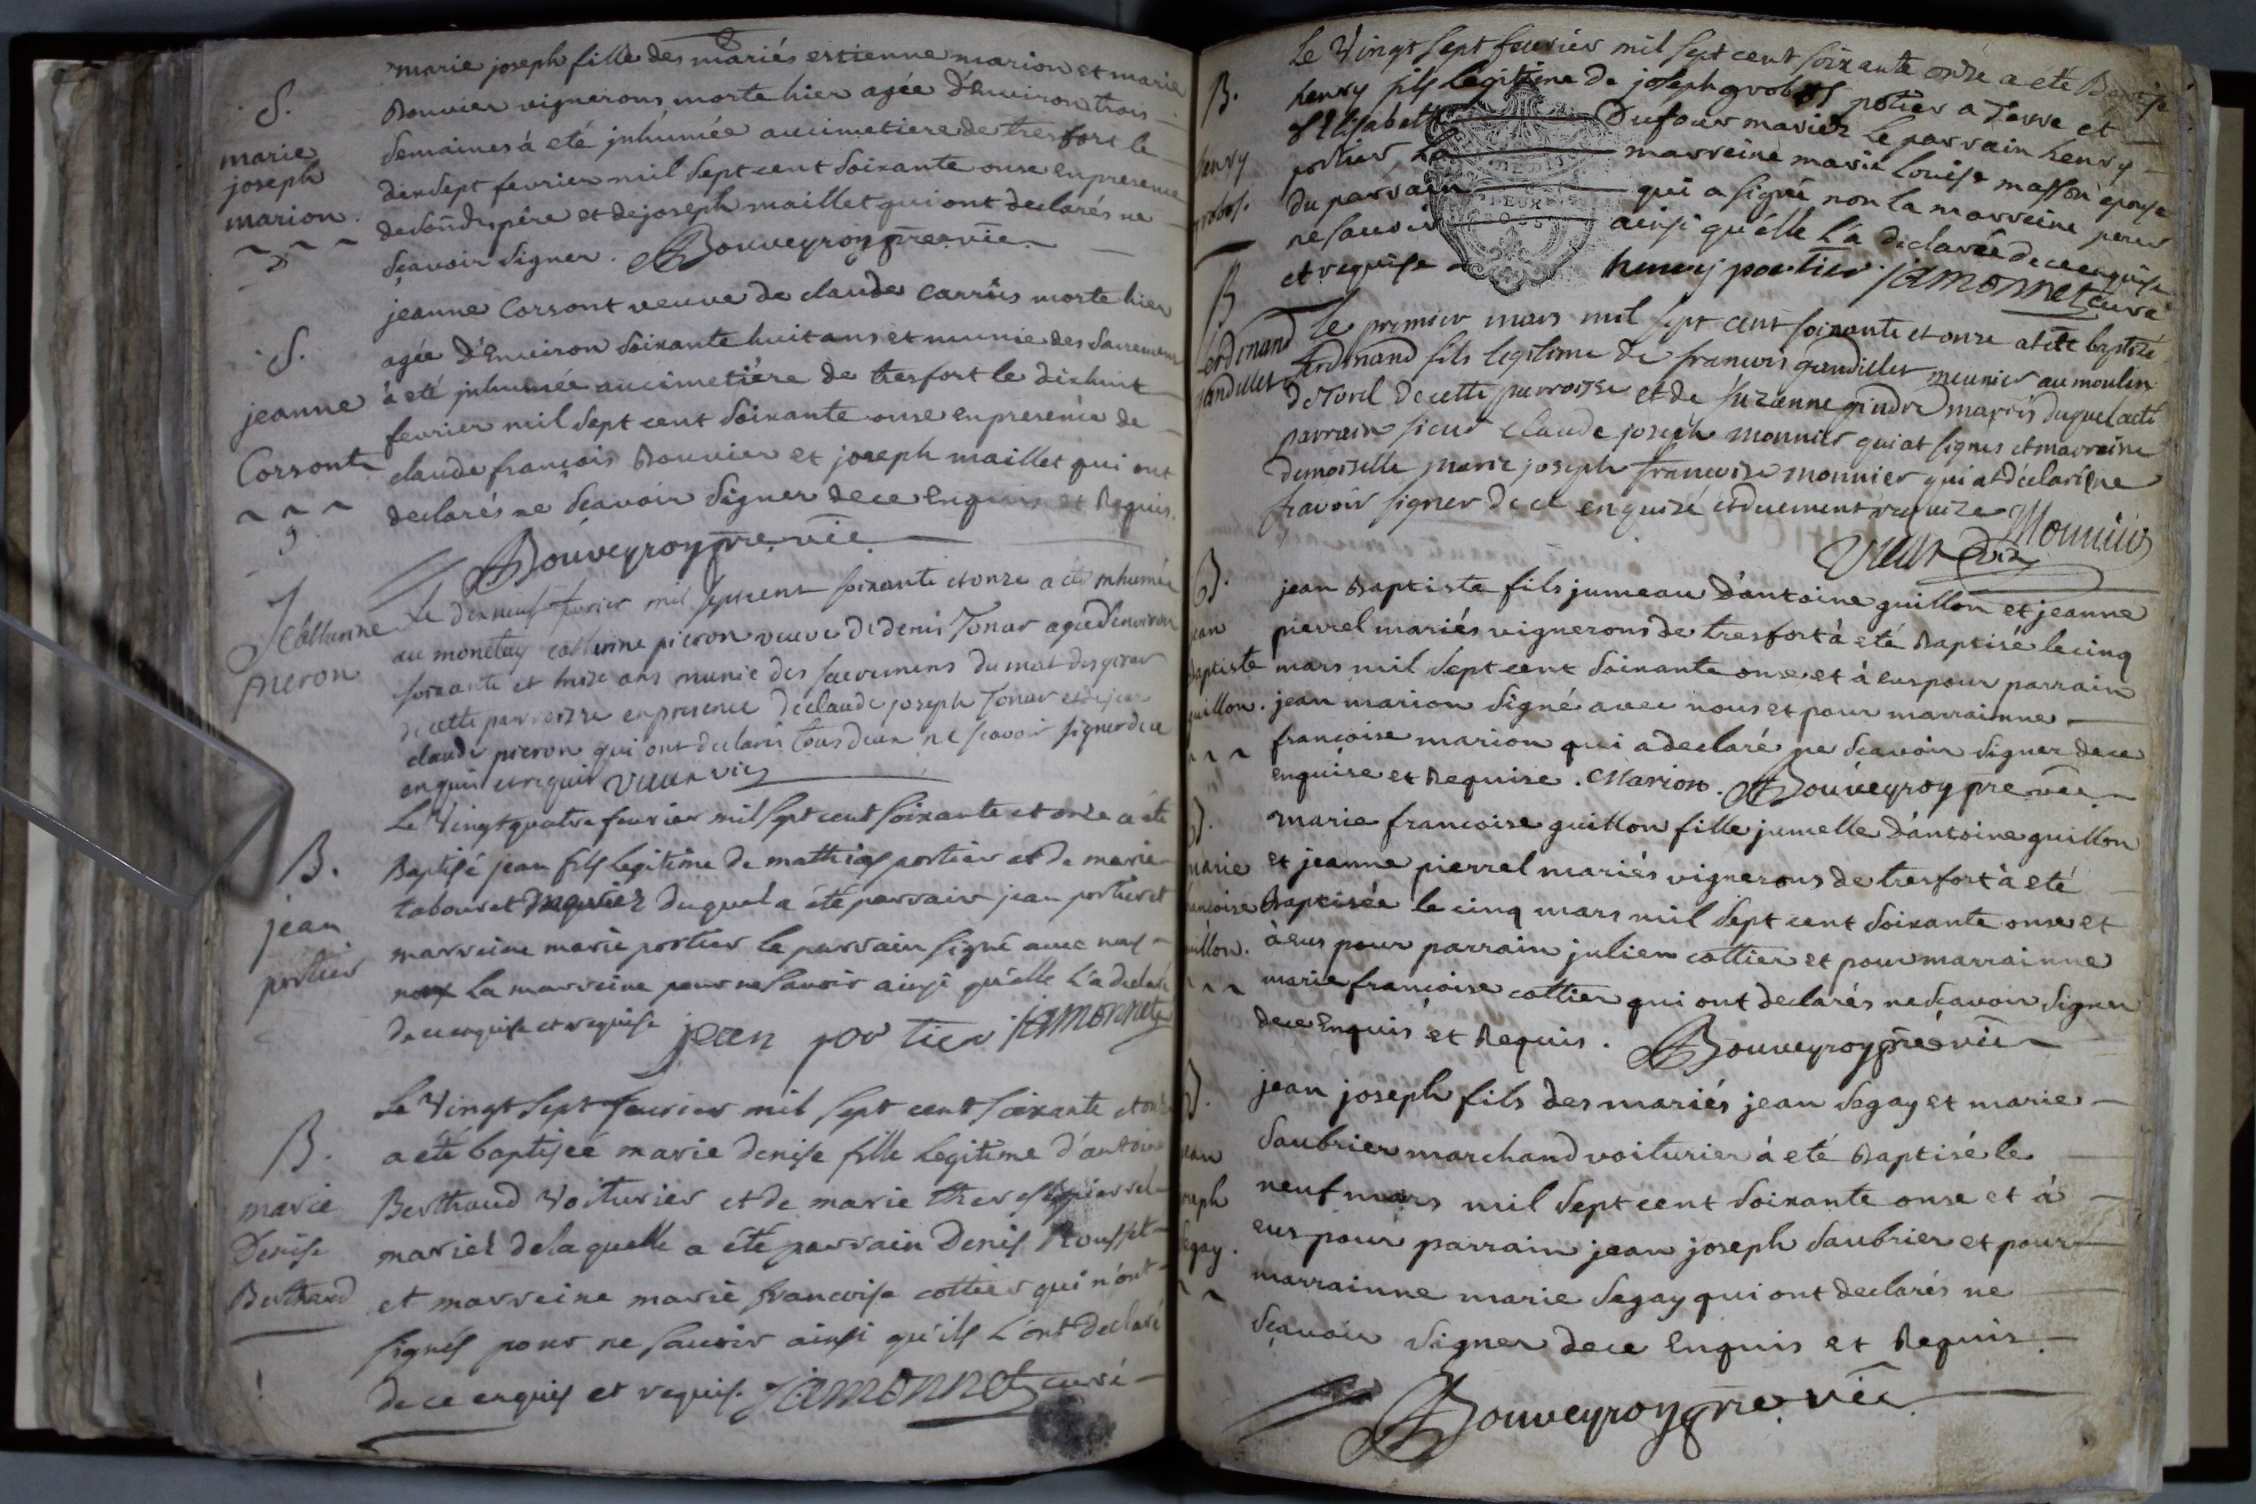 S.
marie
joseph
marion.
marie joseph fille des mariés estienne marion et marie
Bouvier vignerons morte hier agée d'Environ trois
semaines à eté jnhumée au cimetiere de tresfort le
dixsept fevrier mil sept cent soixante onse en presence
père et de joseph maillet qui ont declarés ne
sçavoir signer. Bouveyroy pre vic.
S.
jeanne
Corsont
jeanne Corsont veuve de claude carrüs morte hier
agée d'Environ soixante huit ans et munie des sacremens
à eté jnhumée au cimetière de tresfort le dixhuit
fevrier mil sept cent soixante onse en presence de
claude françois Bouvier et joseph maillet qui ont
declarés ne sçavoir signer de ce Enquis et Requis.
Bouveyroy pre vic
S Catherine
pieron
Le dixneuf fevrier mil septcent soixante et onze a eté inhumée
au monetay catherine pieron veuve de denis Tonar agée d'environ
soixante et ans munie des sacremens du mat des
de cette parroisse en presence de claude joseph Tonar et de jean
claude pieron qui ont declarés tous deux ne scavoir signer de ce
enquis et requis vic
B.
jean
portier
Le Vingt quatre fevrier mil sept cent soixante et onze a été
Baptisé jean fils legitime de mathias portier et de marie
tabouret mariez duquel a été parrain jean portier et
marreine marie portier le parrain signé avec nous
non la marreine pour ne savoir ainsi qu'elle l'a declaré
de ce enquise et requise jean portier jamonnet
B.
marie
Denise
Berthand
Le Vingt sept fevrier mil sept cent soixante et onze
a été baptisée marie denise fille legitime d'antoine
Berthaud Voiturier et de marie therese pierrel
mariez de laquelle a été parrain Denis Rousset
et marreine marie francoise cottier qui n'ont
signés pour ne savoir ainsi qu'ils l'ont declaré
de ce enquis et requis. jamonnet curé
B.
henry
grobos.
Le Vingt sept fevrier mil sept cent soixante onze a été Baptisé
henry fils legitime de joseph grobos potier a Terre et
d'Elisabeth Dufour mariez le parrain henry
portier, La marreine marie louise masson epouse
du parrain qui a signé non la marreine pour
ne savoir ainsi qu'elle l'a declarée de ce enquise
et requise henry portier jamonnet curé
B
ferdinand
gandillet
Le premier mars mil sept cent soixante et onze at été baptizé
ferdinand fils legitime de francois gandillet meunier au moulin
de Torel de cette parroisse et de suzanne gindre marrés duquel at été
parrain sieur claude joseph monnier qui at signé et marraine
demoiselle marie joseph francoise monnier qui at déclaré ne
scavoir signer de ce enquize et duement requize Monnier
vic
B.
jean
baptiste
guillon.
jean Baptiste fils jumeau d'antoine guillon et jeanne
pierrel mariés vignerons de tresfort à eté Baptisé le cinq
mars mil sept cent soixante onse et à eus pour parrain
jean marion signé avec nous et pour marrainne
françoise marion qui a declaré ne sçavoir signer de ce
enquise et Requise. Marion. Bouveyroy pre vic
B.
marie
francoise
guillon.
marie francoise guillon fille jumelle d'antoine guillon
et jeanne pierrel mariés vignerons de tresfort à eté
Baptisée le cinq mars mil sept cent soixante onse et
à eus pour parrain julien cottier et pour marrainne
marie françoise cottier qui ont declarés ne sçavoir signer
de ce Enquis et Requis. Bouveyroy pre vic
B.
jean
joseph
segay.
jean joseph fils des mariés jean segay et marie
saubrier marchand voiturier à eté Baptisé le
neuf mars mil sept cent soixante onse et à
eus pour parrain jean joseph saubrier et pour
marrainne marie segay qui ont declarés ne
sçavoir signer de ce Enquis et Requis.
Bouveyroy pre vic